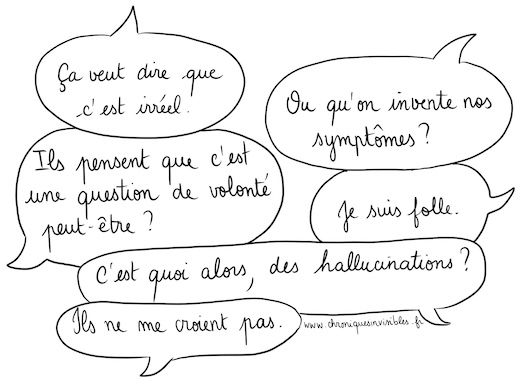 Ça veut dire que
c'est irréel.
Ou qu'on invente nos
symptômes ?
Ils pensent que c'est
une question de volonté
peut-être ?
Je suis folle.
C'est quoi alors, des hallucinations ?
Ils ne me croient pas.
www.chroniquesinvisibles.fr